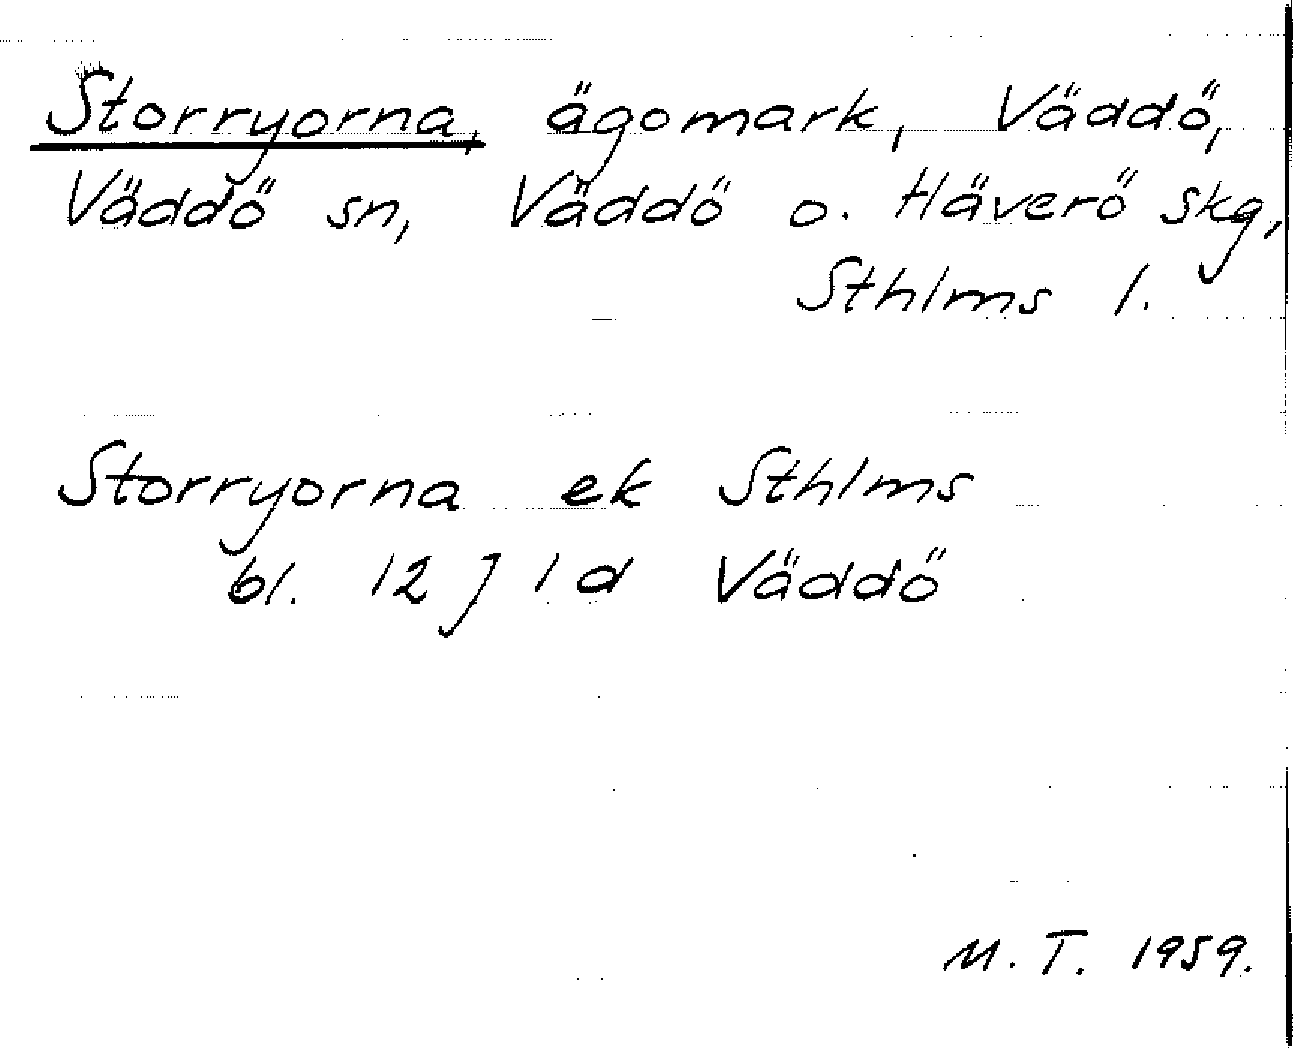 Storryorna, ägomark, Väddö,
Väddö sn, Väddö o. Häverö skg,
Sthlms l.
Storryorna ek Sthlms
bl. 12 J 1 d Väddö
M. T. 1959.